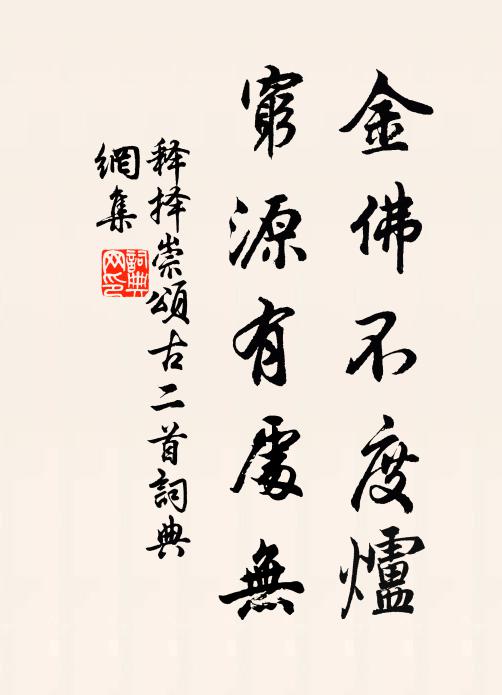 金佛不度爐
窮源有處無
释择崇頌古二首詞典
網集
詞典
网印